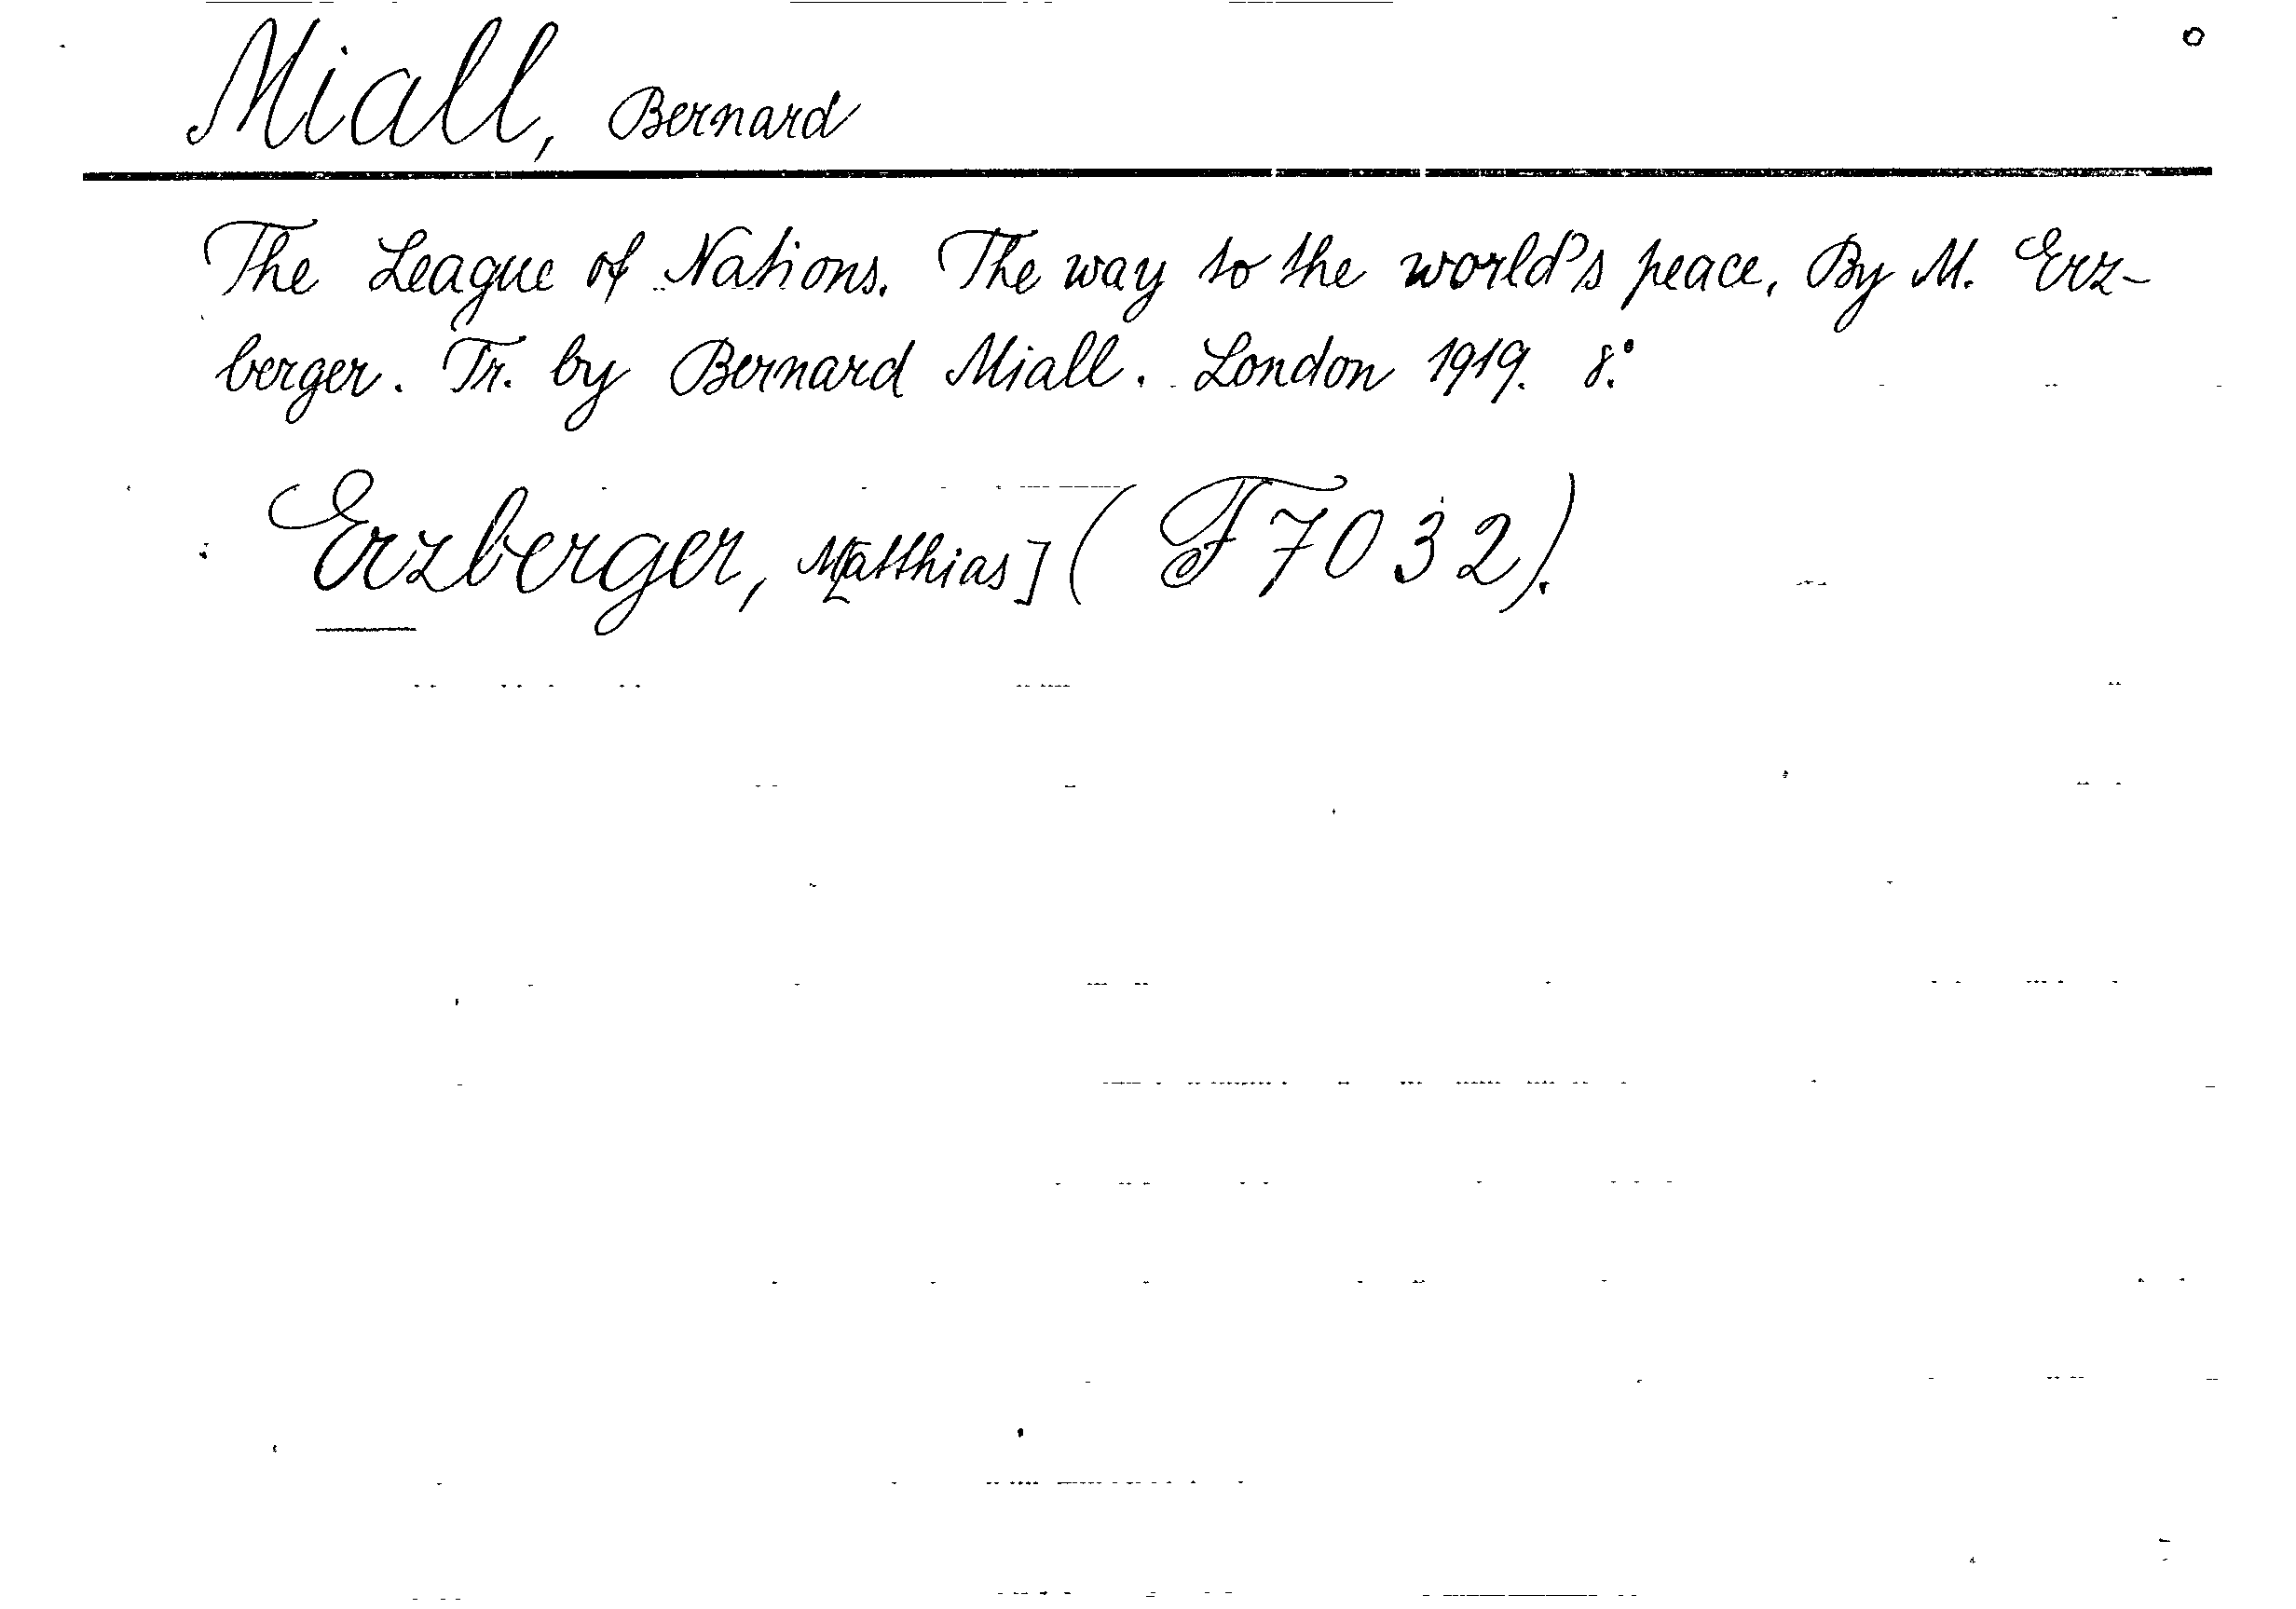 Miall, Bernard
The League of Nations. The way to the world's peace. By M. Erz-
berger. Tr. by Bernard Miall. London 1919. 8.°
Erzberger, M[atthias] (F7032).